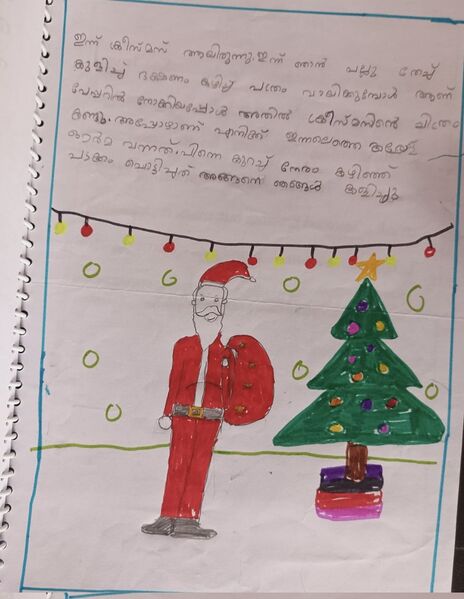 ഇന്ന് ക്രീസ്മസ് ആയിരുന്നു. ഇന്ന് ഞാൻ പല്ലു തേച്ച്
കുളിച്ച് ഭക്ഷണം കഴിച്ച് പത്രം വായിക്കുമ്പോൾ ആണ്
പേപ്പറിൽ നോക്കിയപ്പോൾ അതിൽ ക്രീസ്മസിന്റെ ചിത്രം
കണ്ടു. അപ്പോഴാണ് എനിക്ക് ഇന്നലെത്തെ
ഓർമ വന്നത്. പിന്നെ കുറച്ച് നേരം കഴിഞ്ഞ്
പടക്കം പൊട്ടിച്ചത് അങ്ങനെ ഞങ്ങൾ കളിച്ചു